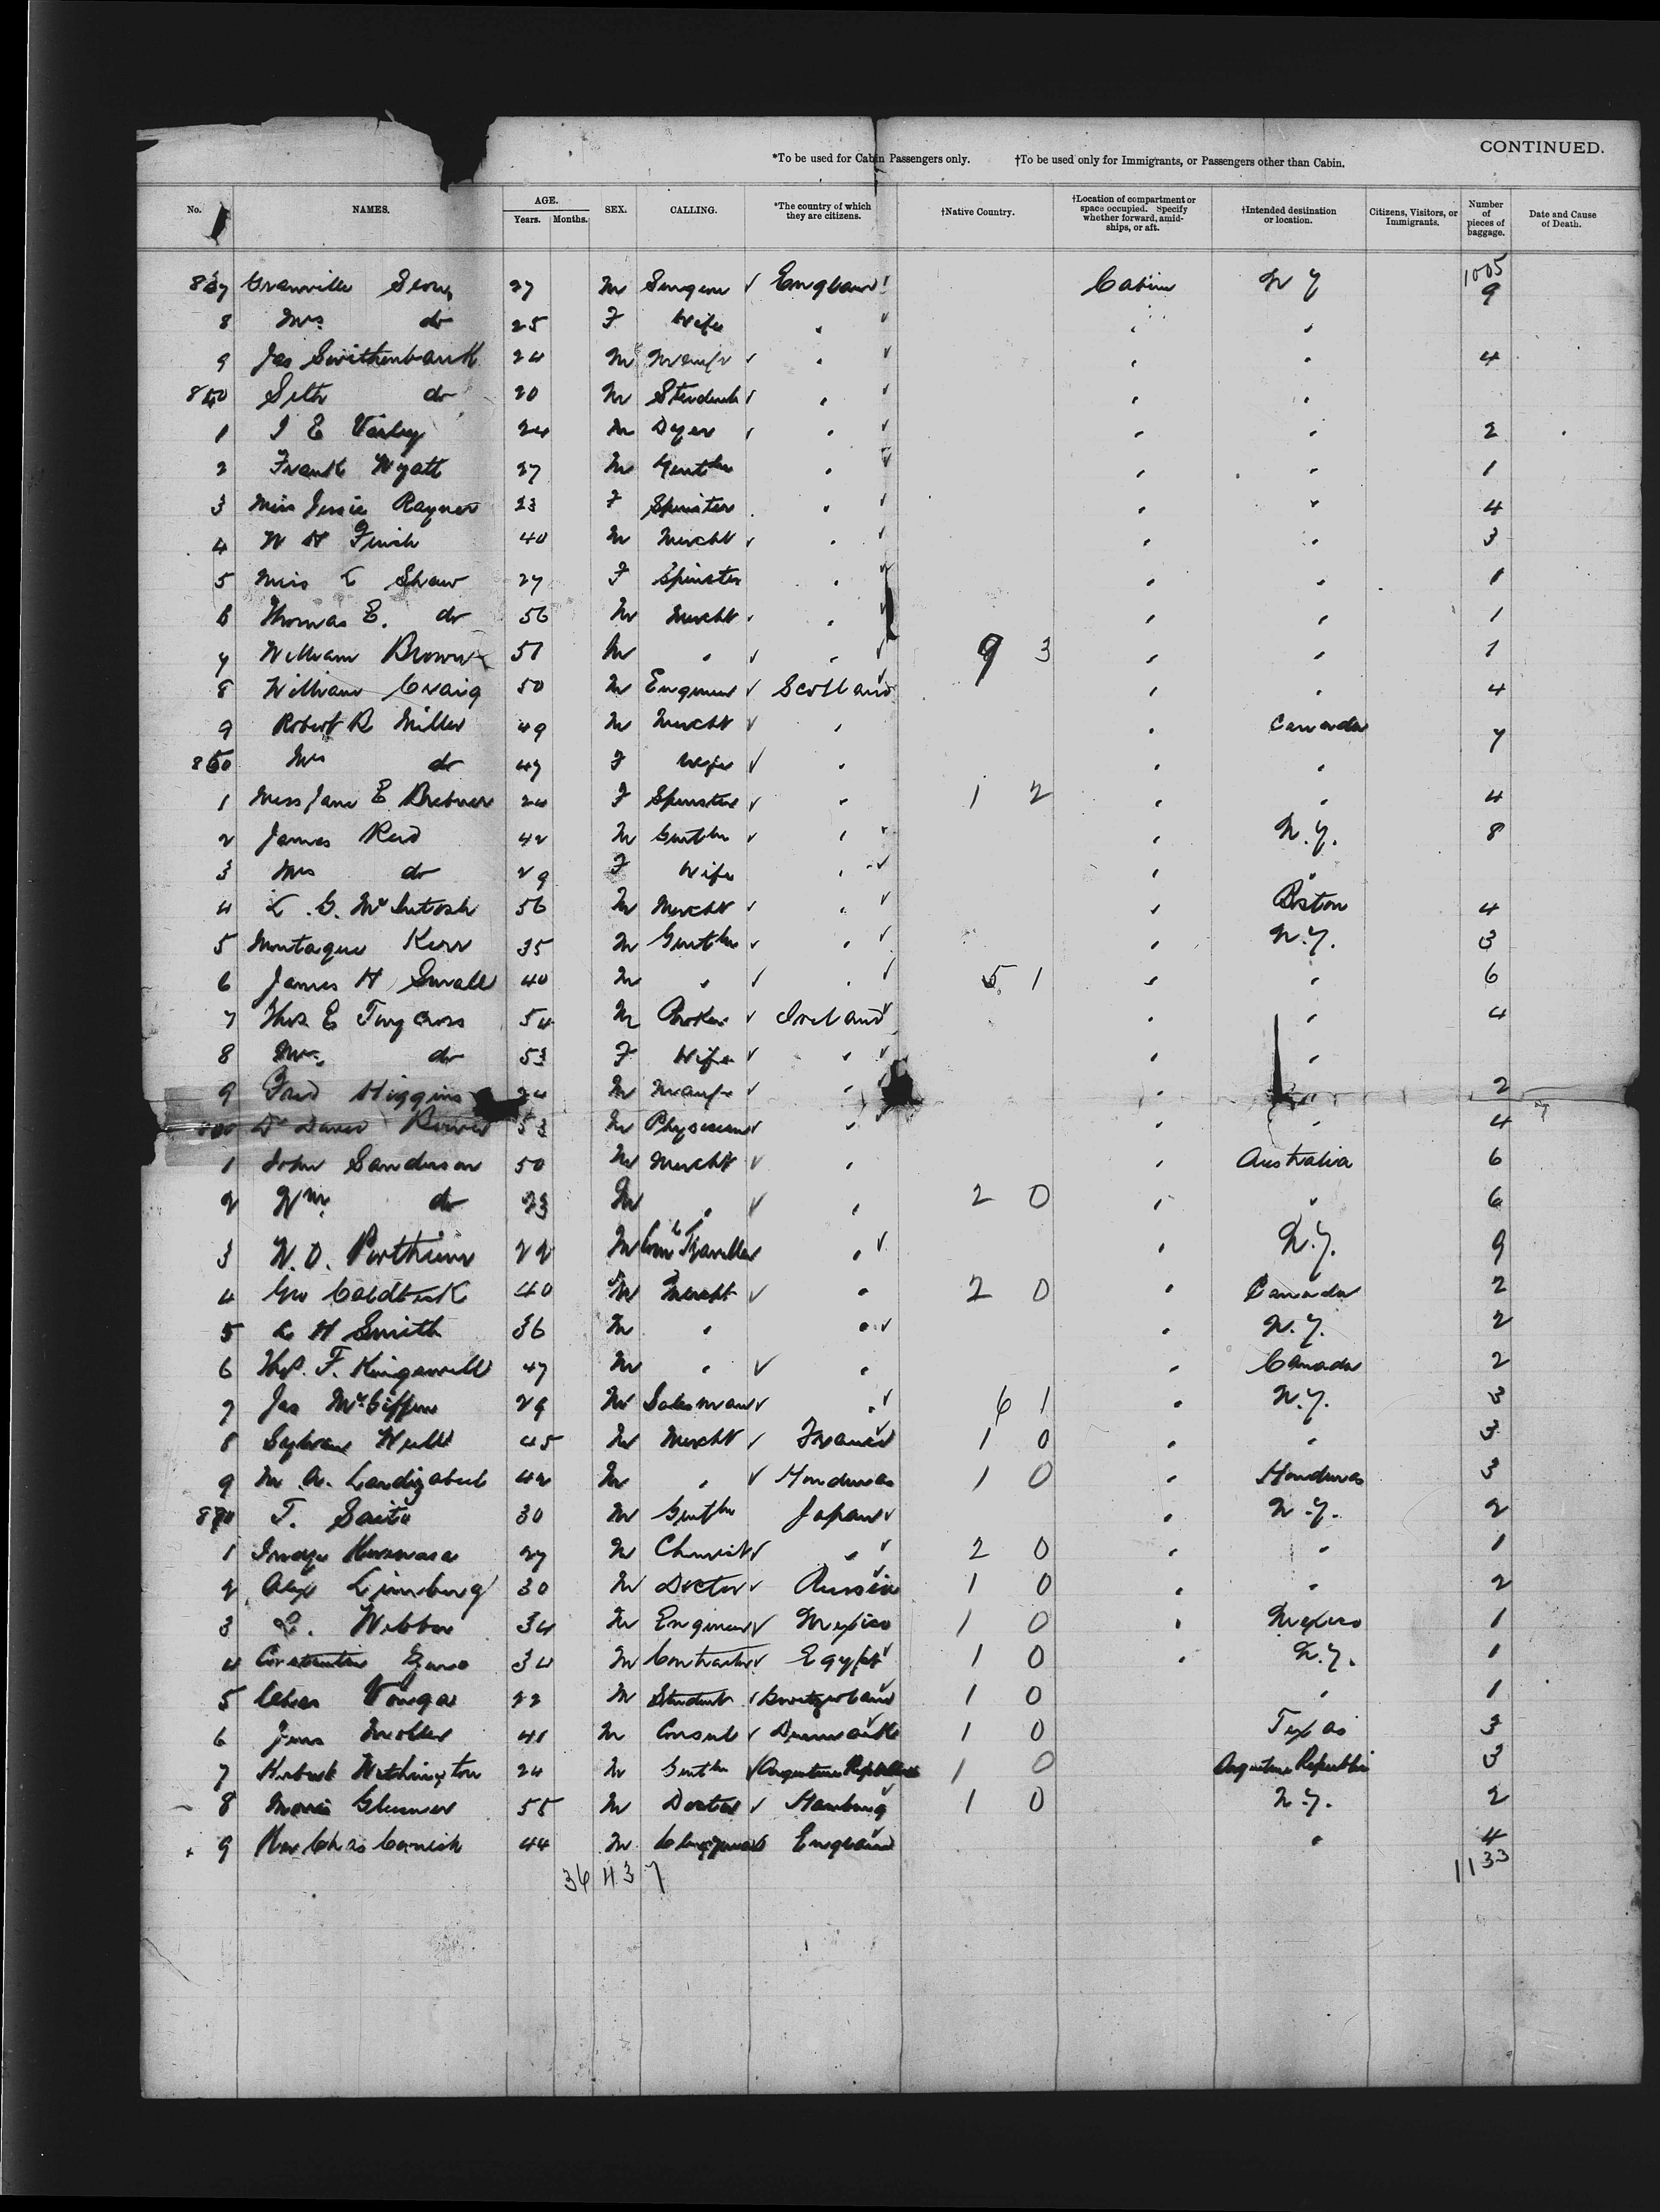 CONTINUED.
*To be used for Cabin Passengers only. †To be used only for Immigrants, or Passengers other than Cabin.
No. NAMES. AGE. Years. Months. SEX. CALLING. *The country of which they are citizens. †Native Country. †Location of compartment or space occupied. Specify whether forward, amidships, or aft. †Intended destination or location. Citizens, Visitors, or Immigrants. Number of pieces of baggage. Date and Cause of Death.
1005
Granville 27 M Surgeon England Cabin N Y 9
8 Mrs do 25 F Wife " " "
9 Jas Swithenbank 24 M Manfr " " " 4
Seth do 20 M Student " " "
1 J E Varley 24 M Dyer " " " 2
2 Frank Wyatt 27 M Gentln " " " 1
3 Miss Jessie Rayner 23 F Spinster " " " 4
4 W H Finch 40 M Mercht " " " 3
5 Miss L Shaw 27 F Spinster " " " 1
6 Thomas E. do 56 M Mercht " " " 1
7 William Brown 51 M " " 9 3 " " 1
8 William Craig 50 M Engineer Scotland " " 4
9 Robert R Miller 49 M Mercht " " Canada 7
850 Mrs do 47 F Wife " " "
1 Miss Jane E. Brebner 24 F Spinster " 1 2 " " 4
2 James Reid 42 M Gentln " " N.Y. 8
3 Mrs do 29 F Wife " " "
4 L. G. McIntosh 56 M Mercht " " Boston 4
5 Montague Kerr 35 M Gentln " " N.Y. 3
6 James H Small 40 M " " 5 1 " " 6
7 Thos E Twycross 54 M Broker Ireland " " 4
8 Mrs. do 53 F Wife " " "
9 Fred Higgins 24 M Manfr " " " 2
Dr David 53 M Physician " " " 4
1 John Sanderson 50 M Mercht " " Australia 6
2 Wm. do 23 M " " 2 0 " " 6
3 22 M Coml Traveller " " N.Y. 9
4 Geo 40 M Mercht " 2 0 " Canada 2
5 H Smith 36 M " " " N.Y. 2
6 F. Kingswell 47 M " " " Canada 2
7 Jas McGiffin 29 M Salesman " 6 1 " N.Y. 3
8 Sylvain Weill 45 M Mercht France 1 0 " " 3
9 42 M " Honduras 1 0 " Honduras 3
870 T. Saito 30 M Gentln Japan " N.Y. 2
1 27 M Chemist " 2 0 " " 1
2 Alex Ginsburg 30 M Doctor Russia 1 0 " " 2
3 Webber 34 M Engineer Mexico 1 0 " Mexico 1
4 34 M Contractor Egypt 1 0 " N.Y. 1
5 Chas Vouga 22 M Student Switzerland 1 0 " 1
6 Jens Moller 41 M Consul Denmark 1 0 Texas 3
7 Herbert 24 M Gentln Argentine Republic 1 0 Argentine Republic 3
8 Morris 55 M Doctor Hamburg 1 0 N.Y. 2
9 Rev Chas Cornish 44 M Clergyman England " 4
36 43 7 1133